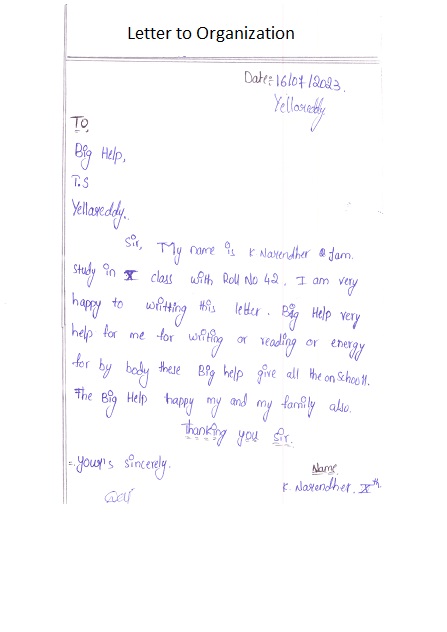 Letter to Organization
Date:- 16/07/2023.
Yellareddy
To
Big Help,
T.S
Yellareddy.
Sir, My name is K Narendher I am
study in X class with Roll No 42. I am very
happy to writting this letter. Big Help very
help for me for writing or reading or energy
for by body these Big help give all the on School.
The Big Help happy my and my family also.
thanking you Sir.
yours sincerely.
Name
K. Narendher. Xth